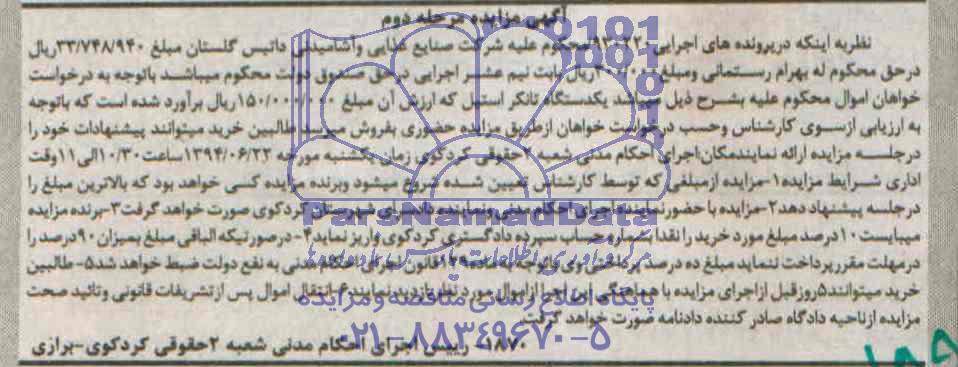 آگهی مزایده مرحله دوم
نظربه اینکه درپرونده های اجرایی محکوم علیه شرکت صنایع غذایی وآشامیدنی داتیس گلستان مبلغ ۳۳/۷۴۸/۹۴۰ریال
درحق محکوم له بهرام رستمانی ومبلغ ریال بابت نیم عشر اجرایی درحق صندوق دولت محکوم میباشد باتوجه به درخواست
خواهان اموال محکوم علیه بشرح ذیل میباشد یکدستگاه تانکر استیل که ارزش آن مبلغ ۱۵۰/۰۰۰/۰۰۰ریال برآورد شده است که باتوجه
به ارزیابی ازسوی کارشناس وحسب درخواست خواهان ازطریق مزایده حضوری بفروش میرسد طالبین خرید میتوانند پیشنهادات خود را
درجلسه مزایده ارائه نمایندمکان:اجرای احکام مدنی شعبه ۲حقوقی کردکوی زمان یکشنبه مورخه ۱۳۹۴/۰۶/۲۲ساعت۱۰/۳۰الی۱۱وقت
اداری شرایط مزایده۱-مزایده ازمبلغی که توسط کارشناس تعیین شده شروع میشود وبرنده مزایده کسی خواهد بود که بالاترین مبلغ را
درجلسه پیشنهاد دهد۲-مزایده با حضورنماینده اجرای احکام مدنی ونماینده دادسرای شهرستان کردکوی صورت خواهد گرفت۳-برنده مزایده
میبایست۱۰درصد مبلغ مورد خرید را نقدا بشماره حساب سپرده دادگستری کردکوی واریز نماید۴-درصورتیکه الباقی مبلغ بمیزان ۹۰درصد را
درمهلت مقرر پرداخت ننماید مبلغ ده درصد پرداختی وی باتوجه به ماده۱۲۹قانون اجرای احکام مدنی به نفع دولت ضبط خواهد شد۵-طالبین
خرید میتوانند۵روزقبل ازاجرای مزایده با هماهنگی این اجرا ازاموال مورد نظر بازدید نمایند۶-انتقال اموال پس ازتشریفات قانونی وتائید صحت
مزایده ازناحیه دادگاه صادر کننده دادنامه صورت خواهد گرفت.
۱۸۷۰- رییس اجرای احکام مدنی شعبه ۲حقوقی کردکوی-برازی
ParsNamadData
پایگاه اطلاع رسانی مناقصه و مزایده
۰۲۱-۸۸۳۴۹۶۷۰-۵